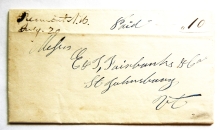 Fremont N.H. Paid 10
Aug. 20
Messrs
E & T, Fairbanks & Co
St Johnsbury
Vt